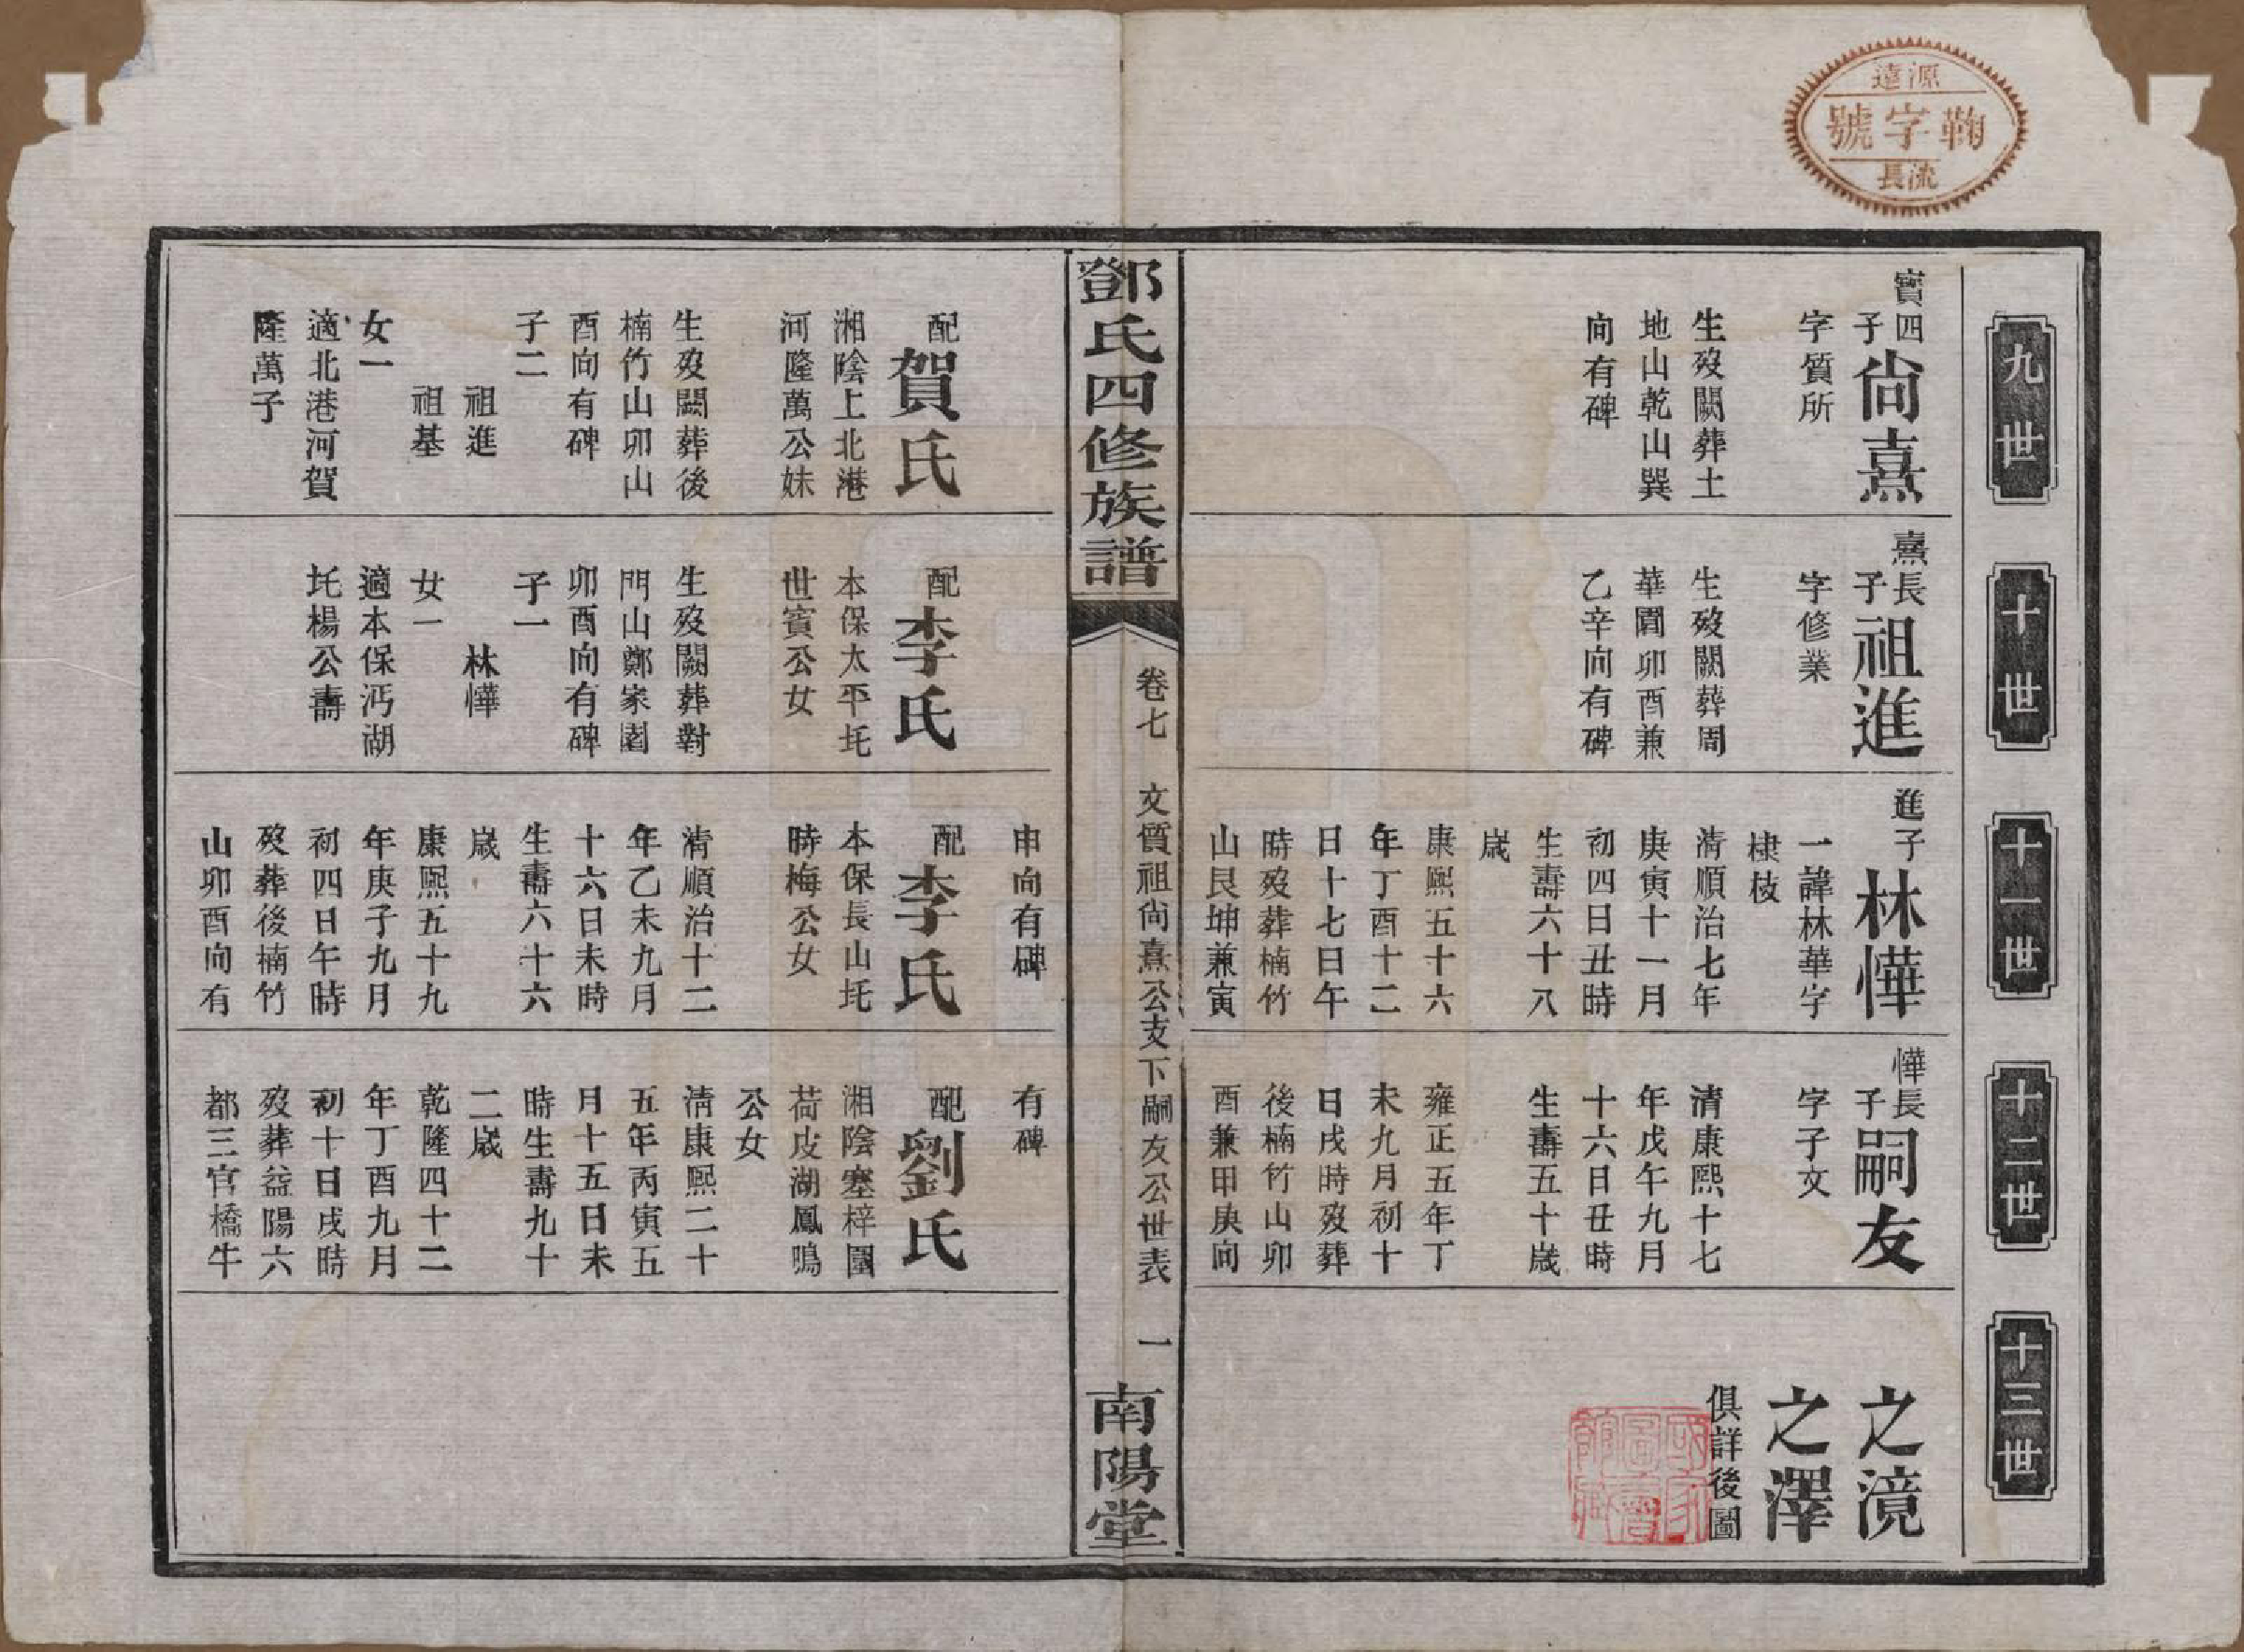 源遠
鞠字號
流長
九世
十世
十一世
十二世
十三世
實四子
尙熹
字質所
生歿闕葬土
地山乾山巽
向有碑
熹長子
祖進
字修業
生歿闕葬周
華園卯酉兼
乙辛向有碑
進子
林㦊
一諱林華字
棣枝
淸順治七年
庚寅十一月
初四日丑時
生壽六十八
歲
康熙五十六
年丁酉十二
日十七日午
時歿葬楠竹
山艮坤兼寅
㦊長子
嗣友
字子文
清康熙十七
年戊午九月
十六日丑時
生壽五十歲
雍正五年丁
未九月初十
日戌時歿葬
後楠竹山卯
酉兼甲庚向
之滰
之澤
俱詳後圖
鄧氏四修族譜
卷七
文質祖尙熹公支下嗣友公世表
一
南陽堂
配
賀氏
湘陰上北港
河隆萬公妹
生歿闕葬後
楠竹山卯山
酉向有碑
子二
祖進
祖基
女一
適北港河賀
隆萬子
配
李氏
本保太平圫
世賓公女
生歿闕葬對
門山鄭家園
卯酉向有碑
子一
林㦊
女一
適本保沔湖
圫楊公壽
申向有碑
配
李氏
本保長山圫
時梅公女
淸順治十二
年乙未九月
十六日未時
生壽六十六
歲
康熙五十九
年庚子九月
初四日午時
歿葬後楠竹
山卯酉向有
有碑
配
劉氏
湘陰塞梓園
荷皮湖鳳鳴
公女
淸康熙二十
五年丙寅五
月十五日未
時生壽九十
二歲
乾隆四十二
年丁酉九月
初十日戌時
歿葬益陽六
都三官橋牛